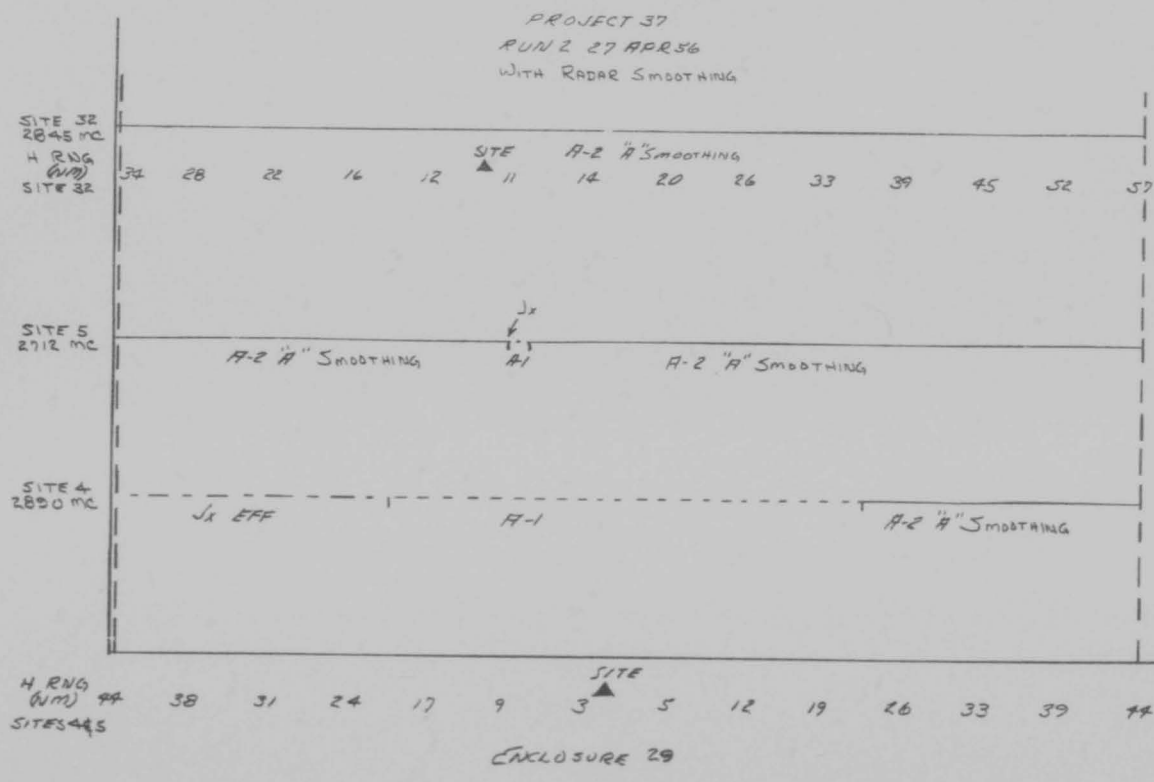 PROJECT 37
RUN 2 27 APR 56
WITH RADAR SMOOTHING
SITE 32
2845 MC
SITE A-2 "A" SMOOTHING
H RNG
(NM)
SITE 32
34 28 22 16 12 11 14 20 26 33 39 45 52 57
Jx
SITE 5
2712 MC
A-2 "A" SMOOTHING A-1 A-2 "A" SMOOTHING
SITE 4
2890 MC
Jx EFF A-1 A-2 "A" SMOOTHING
SITE
H RNG
(NM) 44 38 31 24 17 9 3 5 12 19 26 33 39 44
SITES 4&5
ENCLOSURE 29